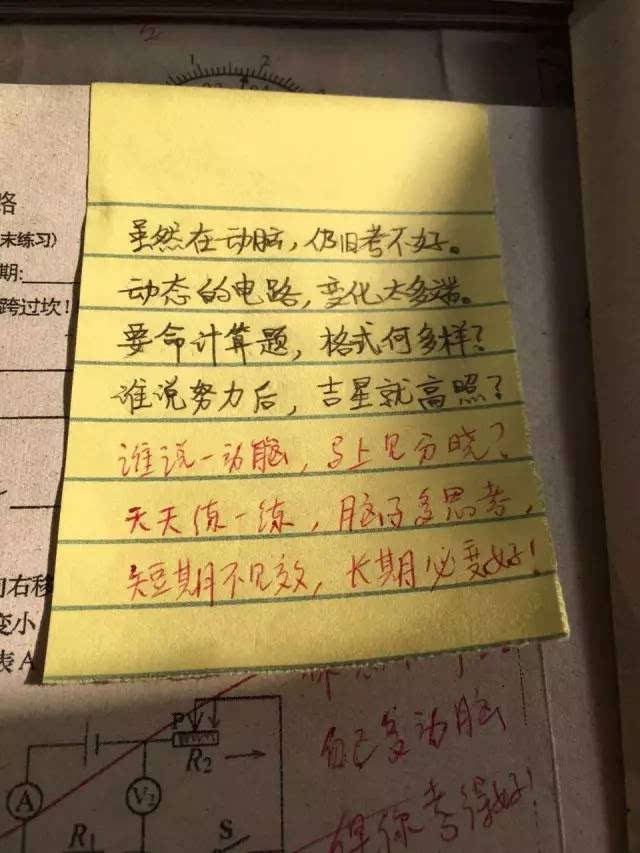 1 2
路
末练习)
期:
跨过坎!
虽然在动脑,仍旧考不好。
动态的电路,变化太多端。
要命计算题,格式何多样?
谁说努力后,吉星就高照?
谁说一动脑,马上见分晓?
天天练一练,脑子多思考,
短期不见效,长期必变好!
右移
变小
表A
自己多动脑
你考得好!
P
R₂
A
V₂
R₁
S